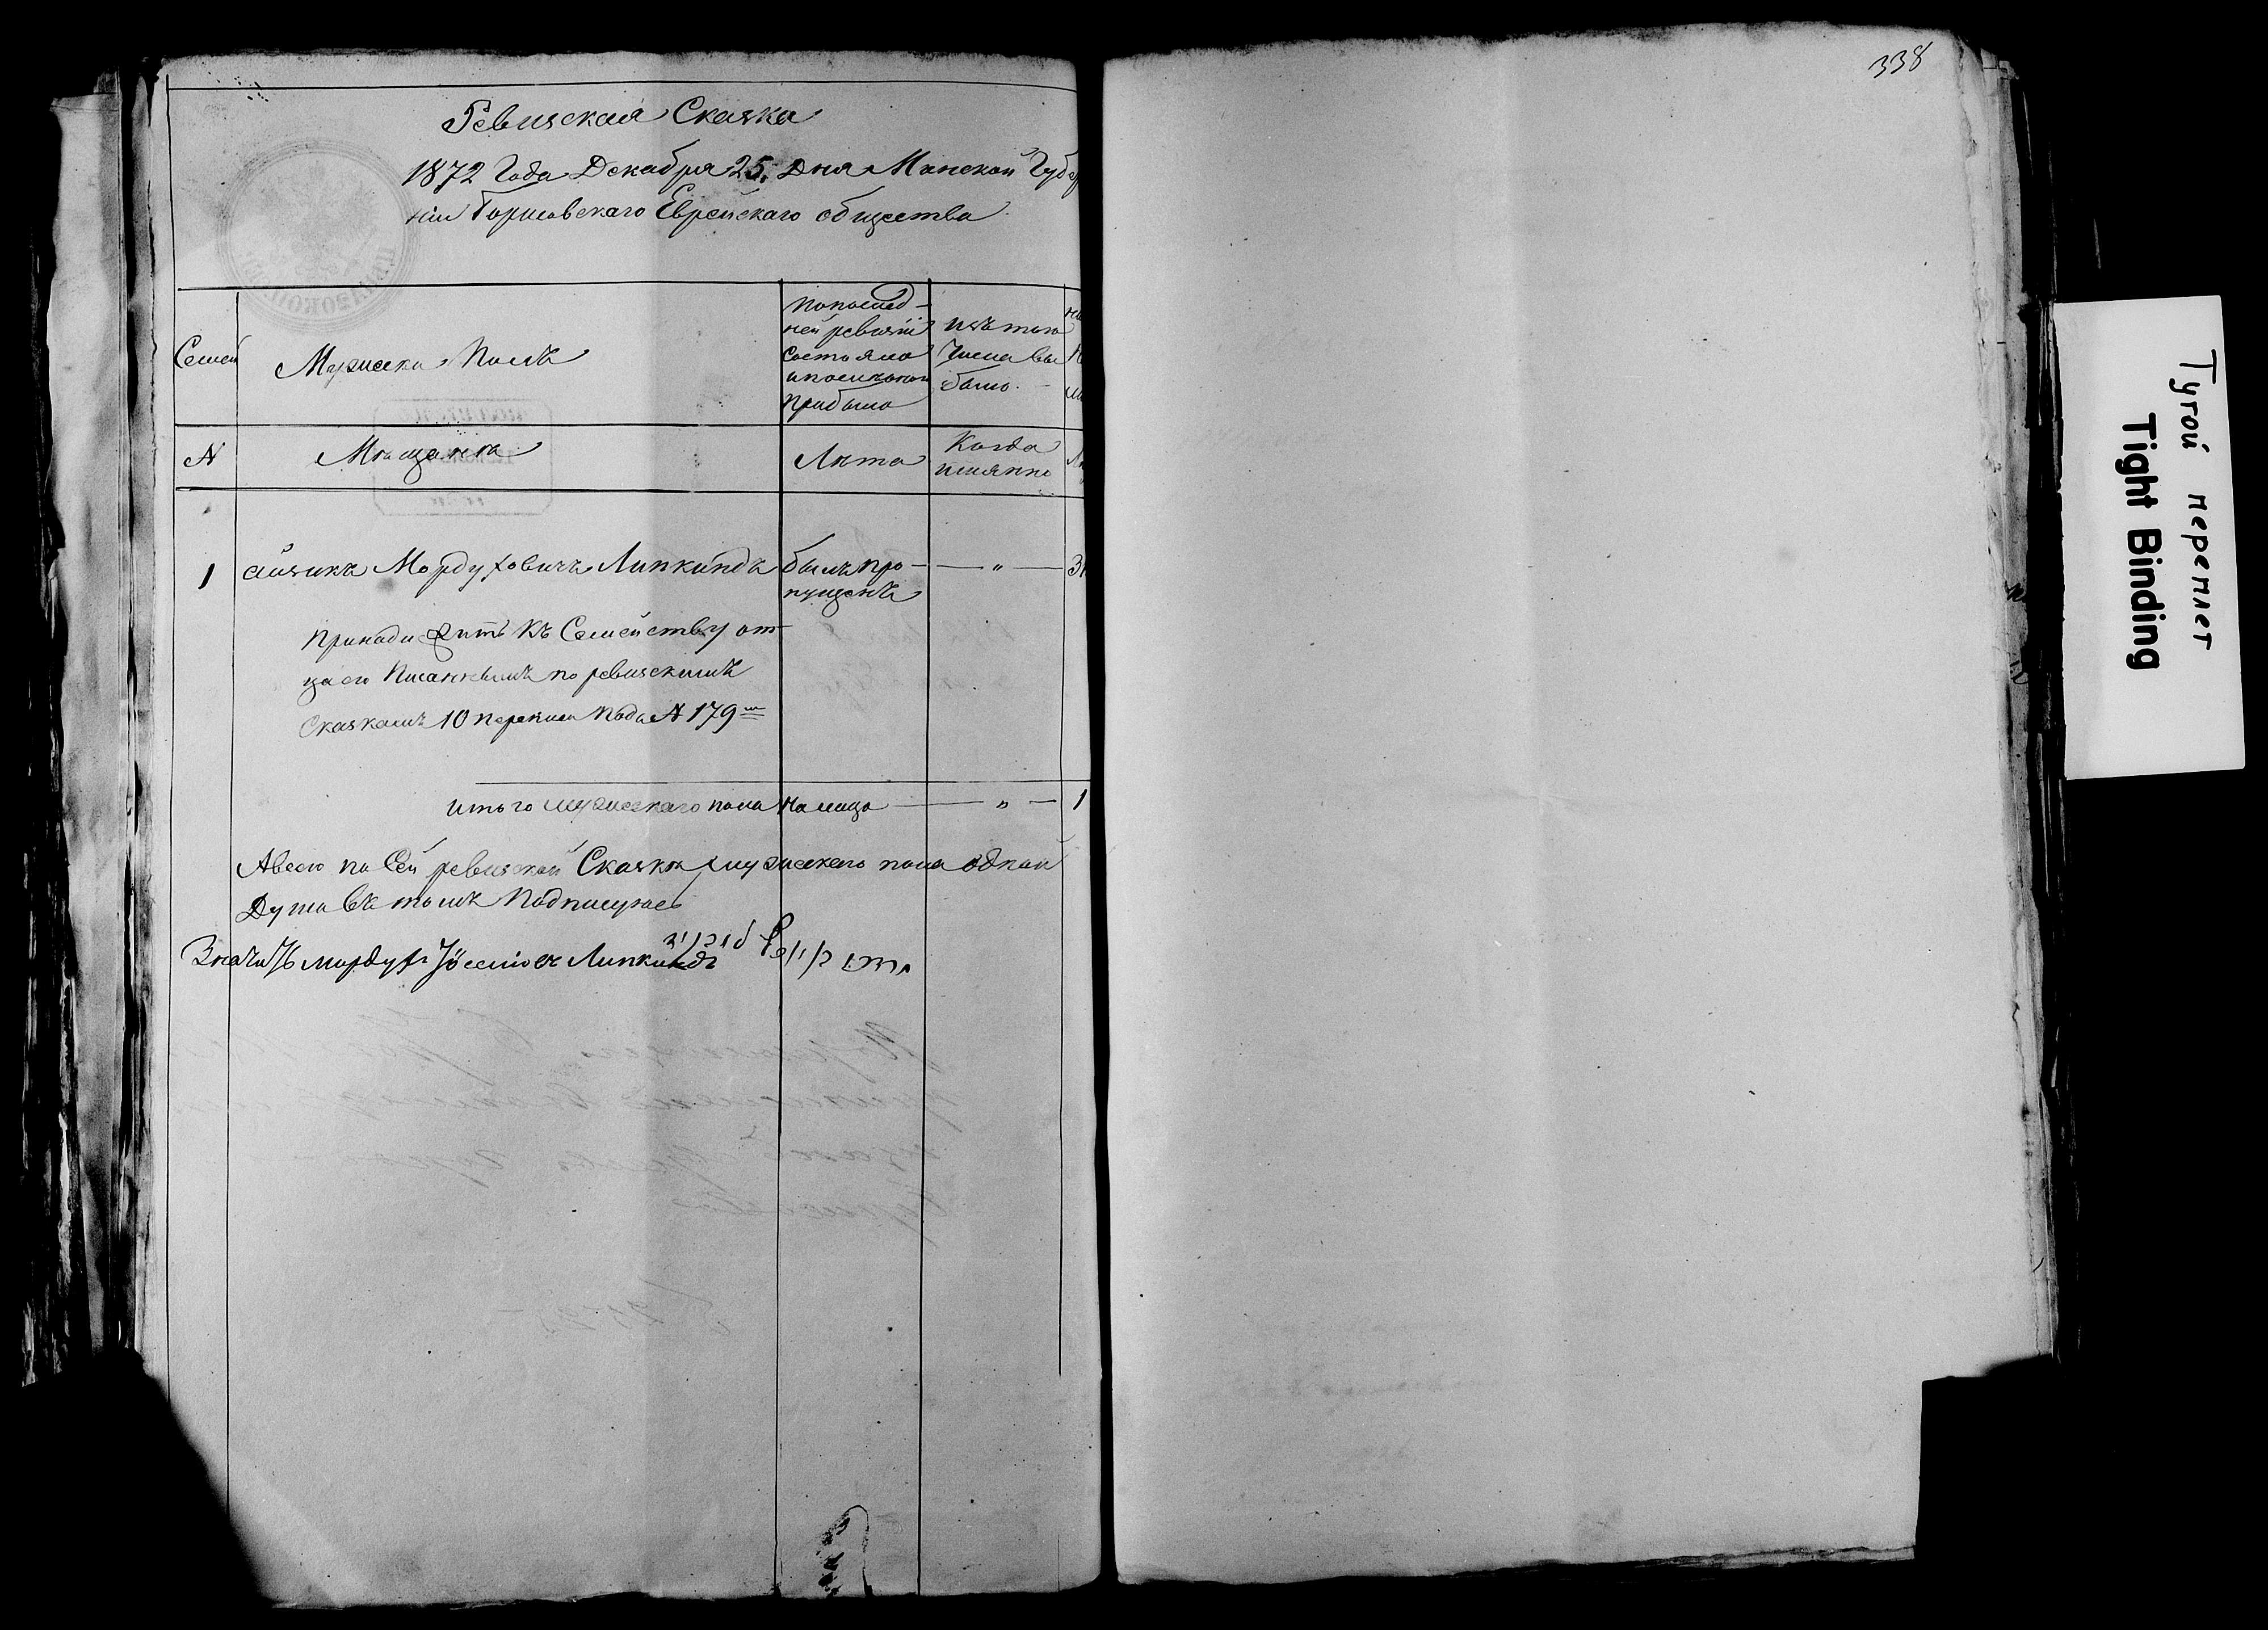 338
Ревизская Сказка
1872 Года Декабря 25. Дня Минской Губер
ніи Борисовскаго Еврейскаго общества
Семей
Мужеска Полъ
по послед-
ней ревизіи
состояло
и после оной
прибыло
изъ того
числа вы
было.
N
Мѣщанѣ
Лѣта
Когда
имянно
1 Айзикъ Мордуховичъ Липкиндъ былъ про- — " —
пущенъ
Принадлежитъ къ Семейству от-
ца его Писаннымъ по ревизскимъ
Сказкамъ 10 переписи подъ N 179 м
Итого мужескаго пола на лицо — " — 1
А всего по Сей ревизской Сказкѣ мужескаго пола одной
Душа въ томъ Подписуюсь
Значитъ мордухъ Липкиндъ
Тугой переплет
Tight Binding